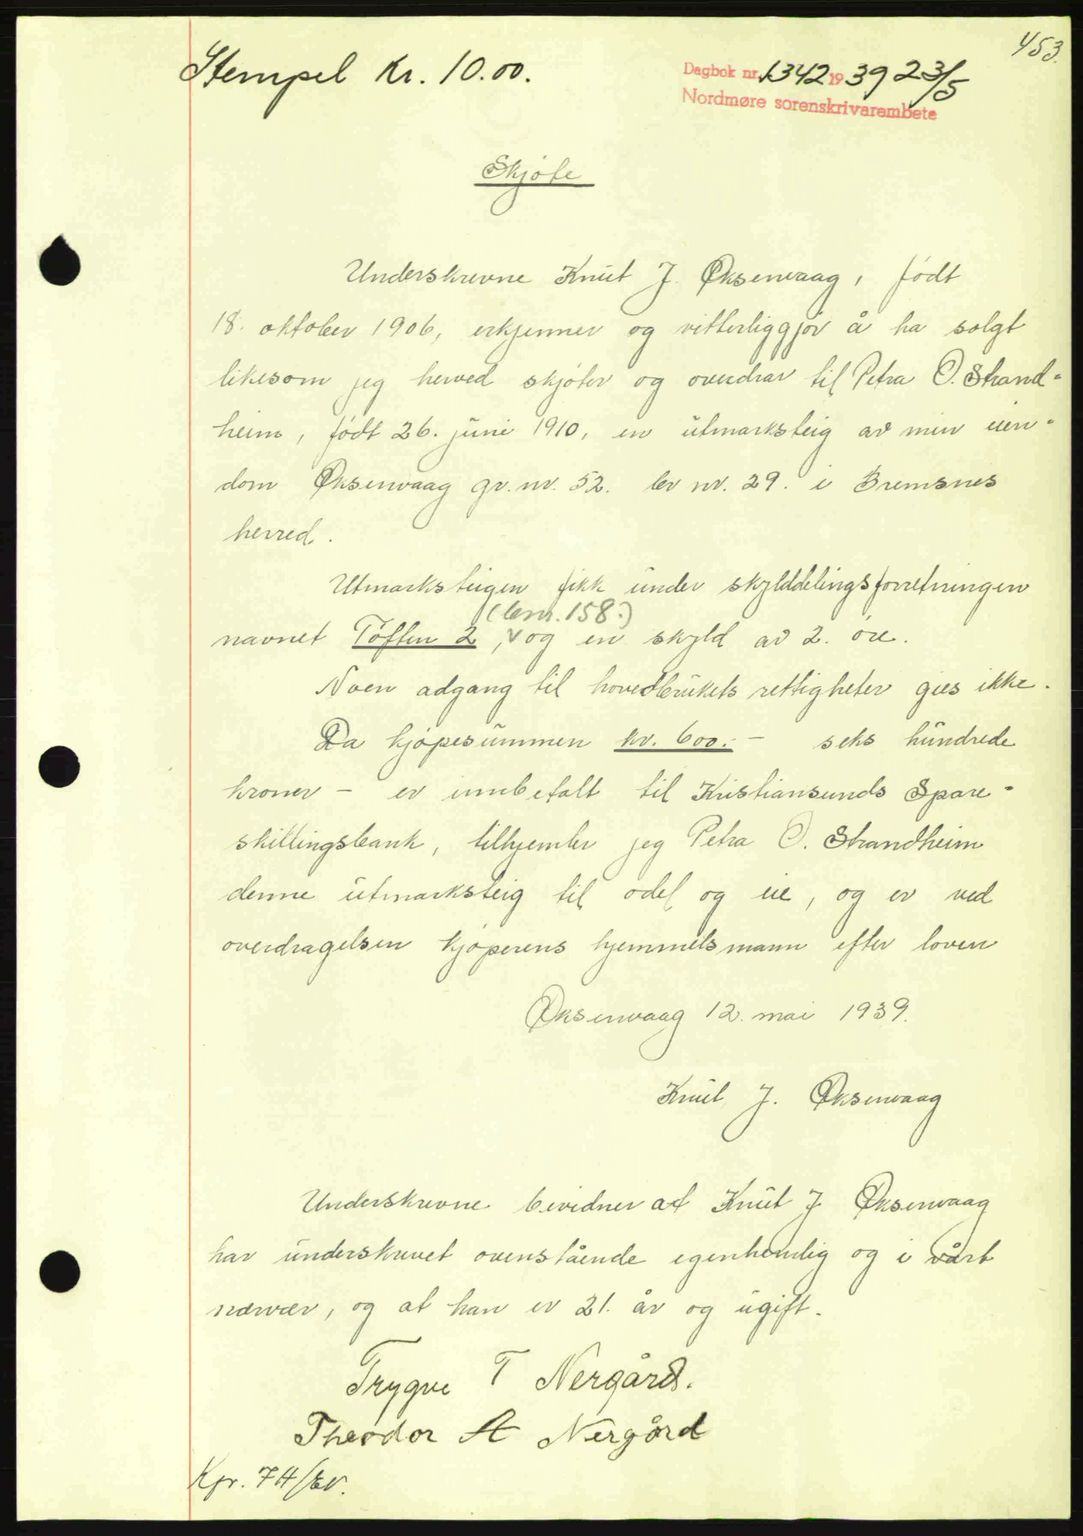 453.
Stempel Kr. 10.00.
Dagbok nr. 1342 1939 23/5
Nordmøre sorenskrivarembete
Skjøte
Underskrevne Knut J. Øksenvaag, født
18. oktober 1906, erkjenner og vitterliggjør å ha solgt
likesom jeg herved skjøter og overdrar til Petra O. Strand-
heim, født 26. juni 1910, en utmarksteig av min eien-
dom Øksenvaag gr. nr. 52. br nr. 29. i Bremsnes
herred.
Utmarksteigen fikk under skylddelingsforretningen
(brnr. 158.)
navnet Tøften 2, v og en skyld av 2. öre.
Noen adgang til hovedbrukets rettigheter gies ikke.
Da kjøpesummen kr. 600.- – seks hundrede
kroner – er innbetalt til Kristiansunds Spare-
skillingsbank, tilhjemler jeg Petra O. Strandheim
denne utmarksteig til odel og eie, og er ved
overdragelsen kjøperens hjemmelsmann efter loven
Øksenvaag 12. mai 1939.
Knut J. Øksenvaag
Underskrevne bevidner at Knut J Øksenvaag
har underskrevet ovenstående egenhendig og i vårt
nærvær, og at han er 21. år og ugift.
Trygve T Nergård.
Theodor A Nergård
Kpr. 74/Ev.